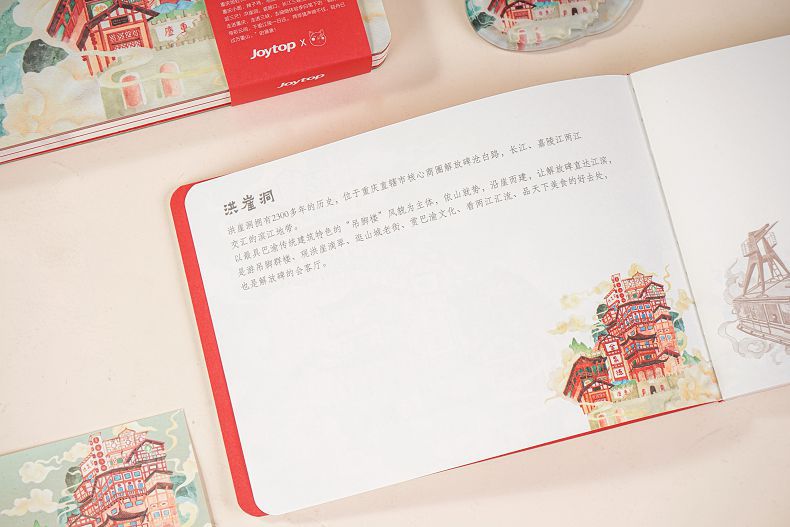 Joytop x
Joytop
洪崖洞
洪崖洞拥有2300多年的历史，位于重庆直辖市核心商圈解放碑沧白路，长江、嘉陵江两江
交汇的滨江地带。
以最具巴渝传统建筑特色的“吊脚楼”风貌为主体，依山就势，沿崖而建，让解放碑直达江滨，
是游吊脚群楼、观洪崖滴翠、逛山城老街、赏巴渝文化、看两江汇流、品天下美食的好去处，
也是解放碑的会客厅。